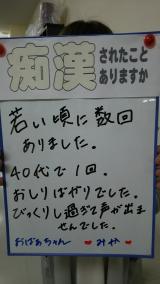 痴漢
されたこと
ありますか
若い頃に数回
ありました。
40代で1回。
おしりばかりでした。
びっくりし過ぎて声が出ま
せんでした。
おばあちゃん みや